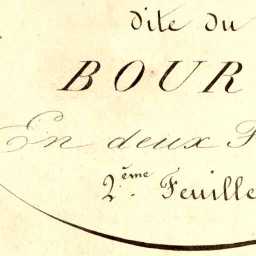 dite du
BOUR
En deux F
2.ème Feuille